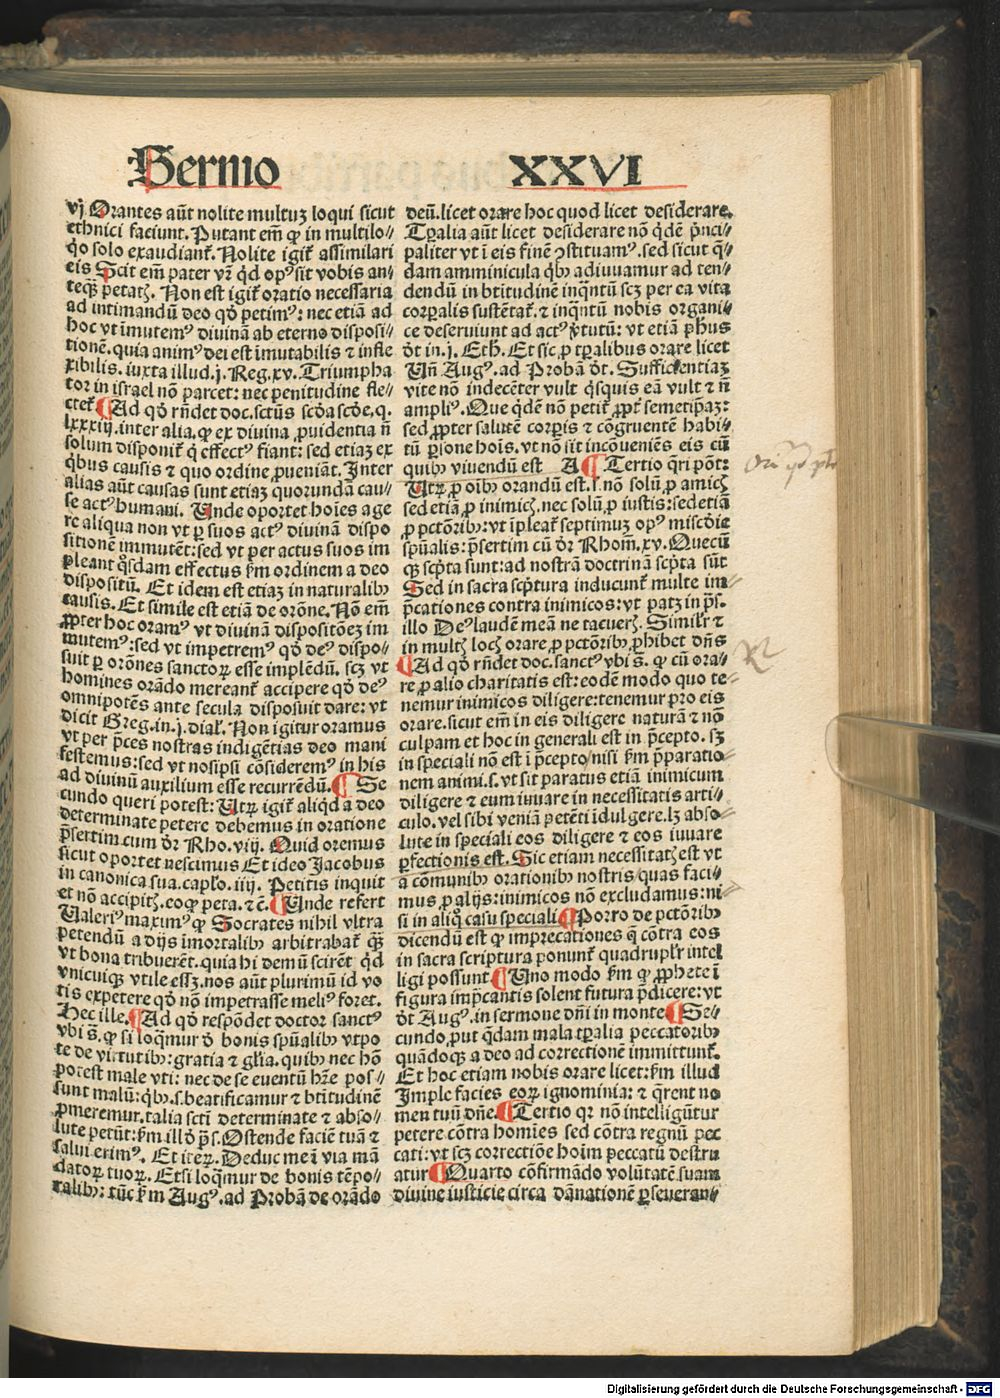 Sermo XXVI
vj Orantes aūt nolite multuꝫ loqui sicut
ethnici faciunt. Putant em̄ ꝙ in multilo⸗
q̇o solo exaudianť. Nolite igiť assimilari
eis Scit em̄ pater vr̄ qd̄ opꝰ sit vobis an⸗
teqꝫ̄ petatꝭ. Non est igiť oratio necessaria
ad intimandū deo qđ petimꝰ: nec etiā ad
hoc vt īmutemꝰ diuinā ab eterno disposi⸗
tionē. quia animꝰ dei est īmutabilis ⁊ infle
xibilis. iuxta illud .j. Reg. xv. Triumpha
tor in israel nō parcet: nec penitudine fle⸗
cteť ¶Ad qđ rn̄det doc. sctūs scđa scđe. q.
lxxxiij. inter alia. ꝙ ex diuina ꝓuidentia n̄
solum disponiť q̇ effectꝰ fiant: sed etiaꝫ ex
q̇bus causis ⁊ quo ordine ꝓueniāt. Inter
alias aūt causas sunt etiaꝫ quorundā cau⸗
se actꝰ humani. Unde oportet hoīes age
re aliqua non vt ꝑ suos actꝰ diuinā dispo
sitionē immutēt: sed vt per actus suos im
pleant q̇sdam effectus ẜm ordinem a deo
dispositū. Et idem est etiaꝫ in naturalibꝰ
causis. Et simile est etiā de orōne. Nō em̄
ꝓpter hoc oramꝰ vt diuinā dispositōeꝫ im
mutemꝰ: sed vt impetremꝰ qđ deꝰ dispo⸗
suit ꝑ orōnes sanctoꝝ esse implēdū. scꝫ vt
homines orādo mereanť accipere qđ deꝰ
omnipotēs ante secula disposuit dare: vt
dicit Greg. in .j. dial̄. Non igitur oramus
vt per p̄ces nostras indigētias deo mani
festemus: sed vt nosipsi cōsideremꝰ in his
ad diuinū auxilium esse recurrēdū. ¶Se
cundo queri potest: Utꝝ igiť aliqd̄ a deo
determinate petere debemus in oratione
p̄sertim cum đr Rho. viij. Quid oremus
sicut oportet nescimus Et ideo Jacobus
in canonica sua. capľo. iiij. Petitis inquit
et nō accipitꝭ. eo ꝙ peta. ⁊c̄. ¶Unde refert
Ualeriꝰ maximꝰ ꝙ Socrates nihil vltra
petendū a dijs īmortalibꝰ arbitrabať qꝫ̄
vt bona tribuerēt. quia hi demū scirēt qd̄
vnicuiqꝫ vtile esset. nos aūt plurimū id vo
tis expetere qđ nō impetrasse meliꝰ foret.
Hec ille. ¶Ad qđ respōdet doctor sanctꝰ
vbi s̄. ꝙ si loq̇mur đ bonis spūalibꝰ vtpo
te de virtutibꝰ: gratia ⁊ gľia. quibꝰ nec hō
potest male vti: nec de se euentū hr̄e pos⸗
sunt malū: q̇bꝰ .s. beatificamur ⁊ btītudinē
ꝓmeremur. talia scti determinate ⁊ abso⸗
lute petūt: ẜm illđ p̄s. Ostende faciē tuā ⁊
salui erimꝰ. Et iteꝝ. Deduc me ī via mā
datoꝝ tuoꝝ. Etsi loq̇mur de bonis tēpo⸗
ralibꝰ: tūc ẜm Augꝰ. ad Probā de orādo
deū. licet orare hoc quod licet desiderare.
Tꝑalia aūt licet desiderare nō qđē p̄nci⸗
paliter vt ī eis finē ↄstituamꝰ. sed sicut q̄⸗
dam amminicula q̇bꝰ adiuuamur ad ten⸗
dendū in btītudinē inq̄ntū scꝫ per ea vita
corꝑalis sustētať. ⁊ inq̄ntū nobis organi⸗
ce deseruiunt ad actꝰ v̓tutū: vt etiā ph̄us
đt in .j. Eth. Et sic ꝓ tꝑalibus orare licet
Un̄ Augꝰ. ad Probā đt. Sufficientiaꝫ
vite nō indecēter vult q̇squis eā vult ⁊ n̄
ampliꝰ. Que qđē nō petiť ꝓpť semetip̄aꝫ:
sed ꝓpter salutē corꝑis ⁊ cōgruentē habi⸗
tū ꝑsone hoīs. vt nō sit incōueniēs eis cū
quibꝰ viuendū est A ¶Tertio q̇ri pōt:
Utꝝ ꝓ oībꝰ orandū est. i. nō solū ꝓ amicꝭ
sed etiā ꝓ inimicꝭ. nec solū ꝓ iustis: sed etiā
ꝓ pctōribꝰ: vt īpleať septimuꝫ opꝰ miscđie
spūalis: p̄sertim cū đr Rhom̄. xv. Quecū
qꝫ scp̄ta sunt: ad nostrā doctrinā scp̄ta sūt
Sed in sacra scp̄tura inducunť multe im⸗
p̄cationes contra inimicos: vt patꝫ in p̄s.
illo Deꝰ laudē meā ne tacuerꝭ. Similr̄ ⁊
in multꝭ locꝭ orare ꝓ pctōribꝰ ꝓhibet dn̄s
¶Ad qđ rn̄det doc. sanctꝰ vbi s̄. ꝙ cū ora⸗
re ꝓ alio charitatis est: eodē modo quo te⸗
nemur inimicos diligere: tenemur pro eis
orare. sicut em̄ in eis diligere naturā ⁊ nō
culpam et hoc in generali est in p̄cepto. sꝫ
in speciali nō est ī p̄cepto/nisi ẜm p̄paratio⸗
nem animi .s. vt sit paratus etiā inimicum
diligere ⁊ eum iuuare in necessitatis arti⸗
culo. vel sibi veniā petēti īdulgere. lꝫ abso⸗
lute in speciali eos diligere ⁊ eos iuuare
ꝑfectionis est. Sic etiam necessitatꝭ est vt
a cōmunibꝰ orationibꝰ nostris/quas faci⸗
mus ꝓ alijs: inimicos nō excludamus: ni⸗
si in aliq̇ casu speciali ¶Porro de pctōribꝰ
dicendū est ꝙ imprecationes q̄ cōtra eos
in sacra scriptura ponunť quadrupľr intel
ligi possunt ¶Uno modo ẜm ꝙ ꝓphete ī
figura imp̄cantis solent futura p̄dicere: vt
đt Augꝰ. in sermone dn̄i in monte ¶Se⸗
cundo ꝓut q̄dam mala tꝑalia peccatoribꝰ
quādoqꝫ a deo ad correctionē immittunť.
Et hoc etiam nobis orare licet: ẜm illud
Imple facies eoꝝ ignominia: ⁊ q̄rent no
men tuū dn̄e. ¶Tertio qꝛ nō intelligūtur
petere cōtra homīes sed cōtra regnū pec
cati: vt scꝫ correctiōe hoīm peccatū destru
atur ¶Quarto cōfirmādo volūtatē suam
diuine iusticie circa dānationē ꝑseueran⸗
Digitalisierung gefördert durch die Deutsche Forschungsgemeinschaft - DFG